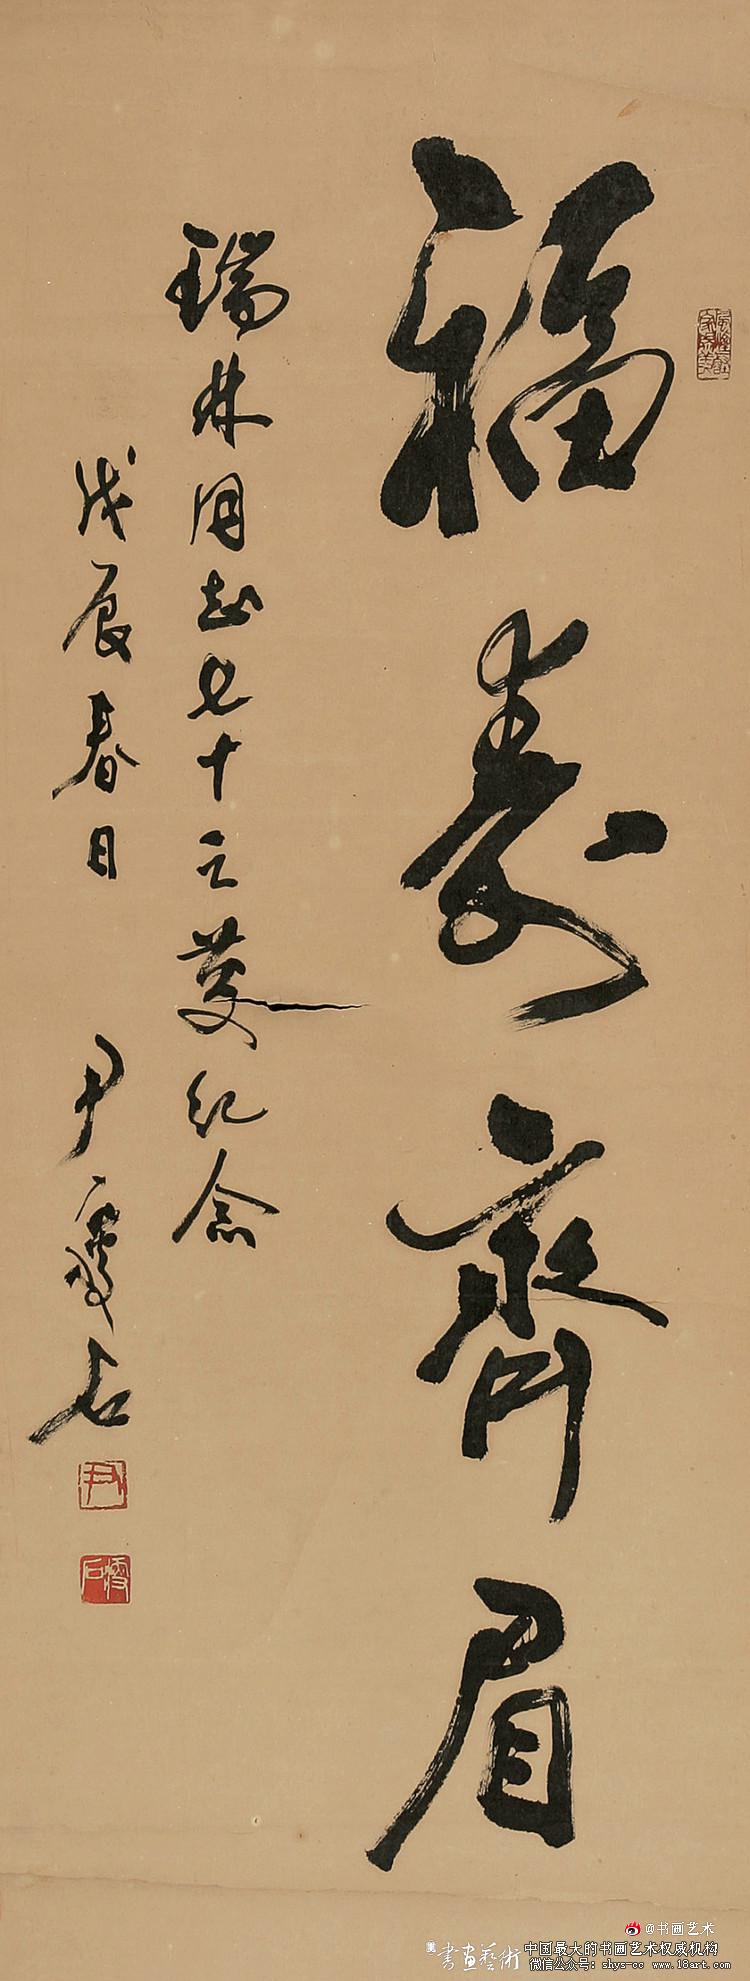 福壽齊眉
瑞林同志七十之慶紀念
戊辰春日 尹瘦石
尹
瘦石
@书画艺术
書畫藝術
中国最大的书画艺术权威机构
微信公众号：shys-cc www.18art.com